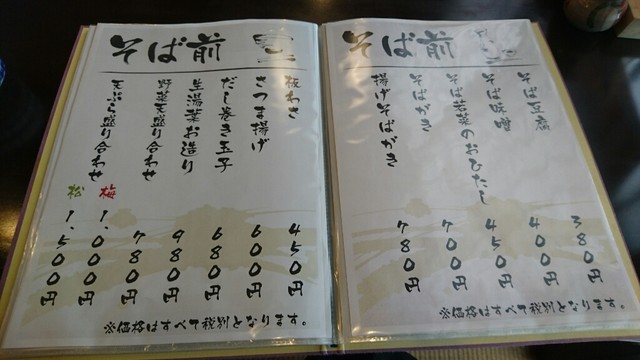 そば前
そば豆腐 380円
そば味噌 400円
そば若菜のおひたし 450円
そばがき 700円
揚げそばがき 780円
※価格はすべて税別となります。
そば前
板わさ 450円
さつま揚げ 600円
だし巻き玉子 680円
生湯葉お造り 980円
野菜天盛り合わせ 780円
天ぷら盛り合わせ 梅 1,000円
松 1,500円
※価格はすべて税別となります。